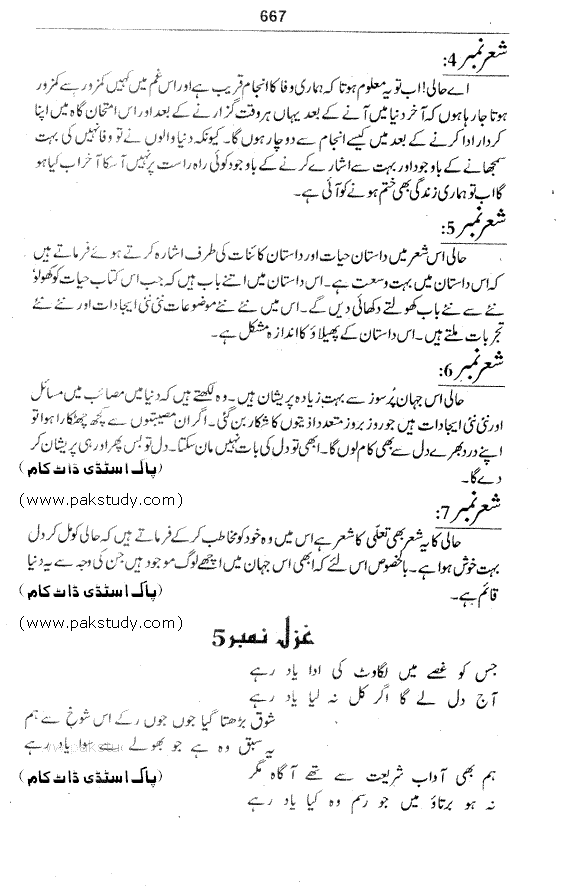 667
شعر نمبر 4:
اے حالی! اب تو یہ معلوم ہوتا کہ ہماری وفا کا انجام قریب ہے اور اس غم میں کہیں کمزور سے کمزور
ہوتا جا رہا ہوں کہ آخر دنیا میں آنے کے بعد یہاں ہر وقت گزارنے کے بعد اور اس امتحان گاہ میں اپنا
کردار ادا کرنے کے بعد میں کیسے انجام سے دوچار ہوں گا۔ کیونکہ دنیا والوں نے تو وفا نہیں کی بہت
سمجھانے کے باوجود اور بہت سے اشارے کرنے کے باوجود کوئی راہ راست پر نہیں آ سکا آخر اب کیا ہو
گا اب تو ہماری زندگی بھی ختم ہونے کو آئی ہے۔
شعر نمبر 5:
حالی اس شعر میں داستان حیات اور داستان کائنات کی طرف اشارہ کرتے ہوئے فرماتے ہیں
کہ اس داستان میں بہت وسعت ہے۔ اس داستان میں اتنے باب ہیں کہ جب اس کتاب حیات کو کھولو
نئے سے نئے باب کھولتے دکھائی دیں گے۔ اس میں نئے نئے موضوعات نئی نئی ایجادات اور نئے نئے
تجربات ملتے ہیں۔ اس داستان کے پھیلاؤ کا اندازہ مشکل ہے۔
شعر نمبر 6:
حالی اس جہان پُر سوز سے بہت زیادہ پریشان ہیں۔ وہ لکھتے ہیں کہ دنیا میں مصائب میں مسائل
اور نئی نئی ایجادات ہیں جو روز بروز متعدد اذیتوں کا شکار بن گئی۔ اگر ان مصیبتوں سے کچھ چھٹکارا ہوا تو
اپنے درد بھرے دل سے بھی کام لوں گا۔ ابھی تو دل کی بات نہیں مان سکتا۔ دل تو بس پھر اور ہی پریشان کر
دے گا۔ (پاک اسٹڈی ڈاٹ کام)
(www.pakstudy.com)
شعر نمبر 7:
حالی کا یہ شعر بھی تعلّی کا شعر ہے اس میں وہ خود کو مخاطب کر کے فرماتے ہیں کہ حالی کو مل کر دل
بہت خوش ہوا ہے۔ بالخصوص اس لئے کہ ابھی اس جہان میں اچھے لوگ موجود ہیں جن کی وجہ سے یہ دنیا
قائم ہے۔ (پاک اسٹڈی ڈاٹ کام)
(www.pakstudy.com)
غزل نمبر 5
جس کو غصے میں لگاوٹ کی ادا یاد رہے
آج دل لے گا اگر کل نہ لیا یاد رہے
شوق بڑھتا گیا جوں جوں رکے اس شوخ سے ہم
یہ سبق وہ ہے جو بھولے سے سوا یاد رہے
ہم بھی آداب شریعت سے تھے آگاہ مگر (پاک اسٹڈی ڈاٹ کام)
نہ ہو برتاؤ میں جو رسم وہ کیا یاد رہے